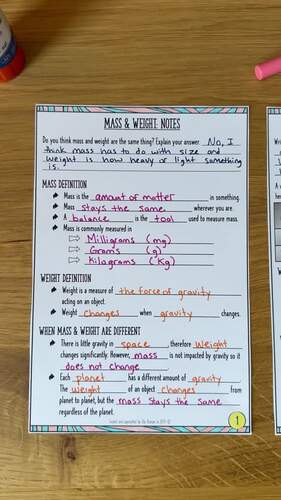 MASS & WEIGHT: NOTES
Do you think mass and weight are the same thing? Explain your answer. No, I
think mass has to do with size and
weight is how heavy or light something
is.
MASS DEFINITION
Mass is the amount of matter in something.
Mass stays the same wherever you are.
A balance is the tool used to measure mass.
Mass is commonly measured in
Milligrams (mg)
Grams (g)
Kilograms (Kg)
WEIGHT DEFINITION
Weight is a measure of the force of gravity
acting on an object.
Weight changes when gravity changes.
WHEN MASS & WEIGHT ARE DIFFERENT
There is little gravity in space, therefore weight
changes significantly. However, mass is not impacted by gravity so it
does not change.
Each planet has a different amount of gravity.
The weight of an object changes from
planet to planet, but the mass stays the same
regardless of the planet.
1